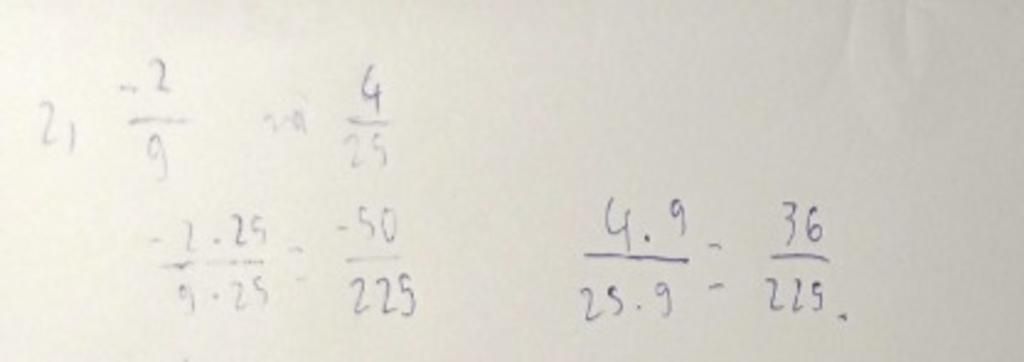 2, -2/9 và 4/25
-2.25/9.25 = -50/225 4.9/25.9 = 36/225.